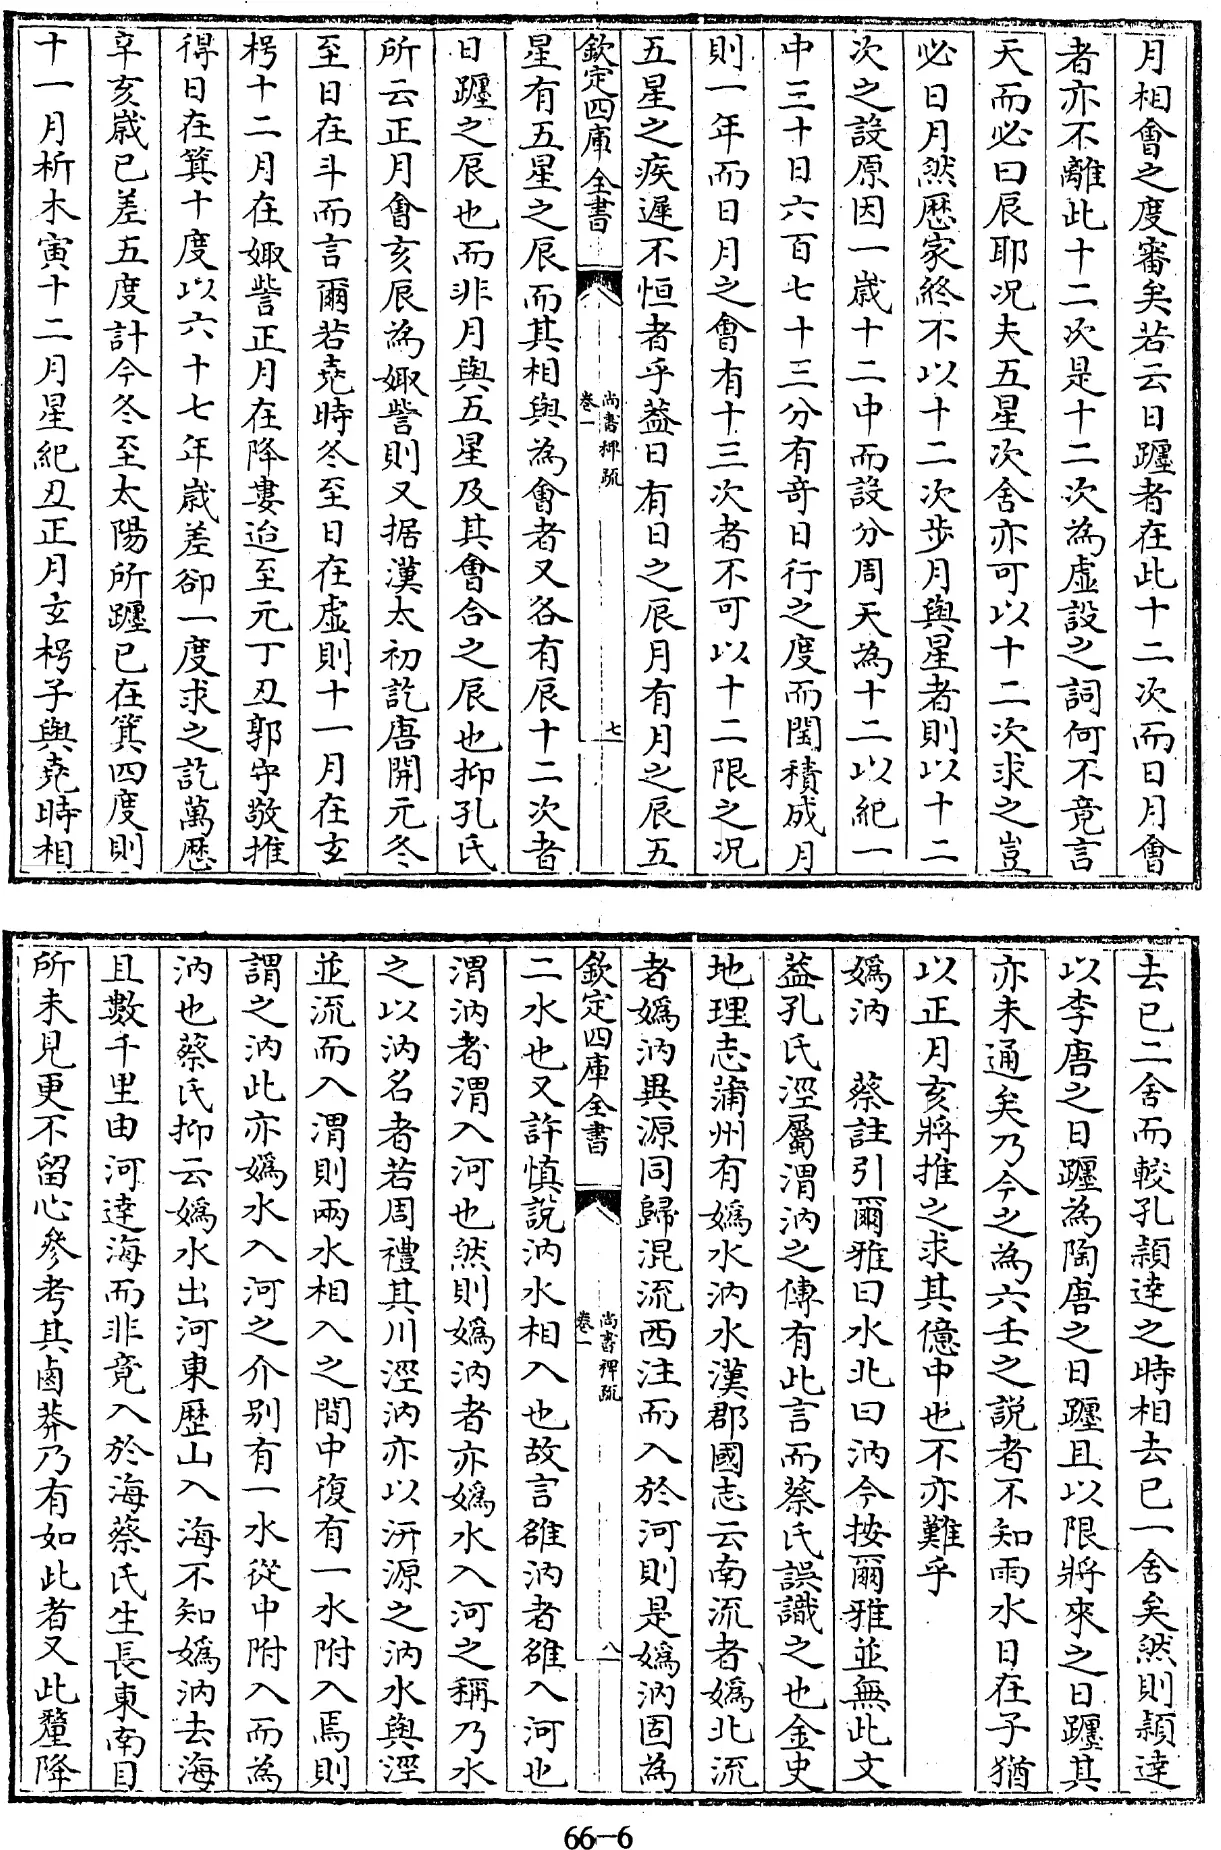 月相會之度審矣若云日躔者在此十二次而日月會
者亦不離此十二次是十二次為虛設之詞何不竟言
天而必曰辰耶况夫五星次舍亦可以十二次求之豈
必日月然厯家終不以十二次步月與星者則以十二
次之設原因一歲十二中而設分周天為十二以紀一
中三十日六百七十三分有奇日行之度而閏積成月
則一年而日月之會有十三次者不可以十二限之况
五星之疾遲不恒者乎葢日有日之辰月有月之辰五
欽定四庫全書
尚書稗疏
卷一
七
星有五星之辰而其相與為會者又各有辰十二次者
日躔之辰也而非月與五星及其會合之辰也抑孔氏
所云正月會亥辰為娵訾則又据漢太初訖唐開元冬
至日在斗而言爾若堯時冬至日在虛則十一月在玄
枵十二月在娵訾正月在降婁迨至元丁丑郭守敬推
得日在箕十度以六十七年歲差卻一度求之訖萬厯
辛亥歲已差五度計今冬至太陽所躔已在箕四度則
十一月析木寅十二月星紀丑正月玄枵子與堯時相
去已二舍而較孔穎達之時相去已一舍矣然則穎達
以李唐之日躔為陶唐之日躔且以限將來之日躔其
亦未通矣乃今之為六壬之說者不知雨水日在子猶
以正月亥將推之求其億中也不亦難乎
媯汭　蔡註引爾雅曰水北曰汭今按爾雅並無此文
葢孔氏涇屬渭汭之傳有此言而蔡氏誤識之也金史
地理志蒲州有媯水汭水漢郡國志云南流者媯北流
者媯汭異源同歸混流西注而入於河則是媯汭固為
欽定四庫全書
尚書稗疏
卷一
八
二水也又許慎說汭水相入也故言雒汭者雒入河也
渭汭者渭入河也然則媯汭者亦媯水入河之稱乃水
之以汭名者若周禮其川涇汭亦以汧源之汭水與涇
並流而入渭則兩水相入之間中復有一水附入焉則
謂之汭此亦媯水入河之介别有一水從中附入而為
汭也蔡氏抑云媯水出河東歷山入海不知媯汭去海
且數千里由河達海而非竟入於海蔡氏生長東南目
所未見更不留心參考其鹵莽乃有如此者又此釐降
66-6